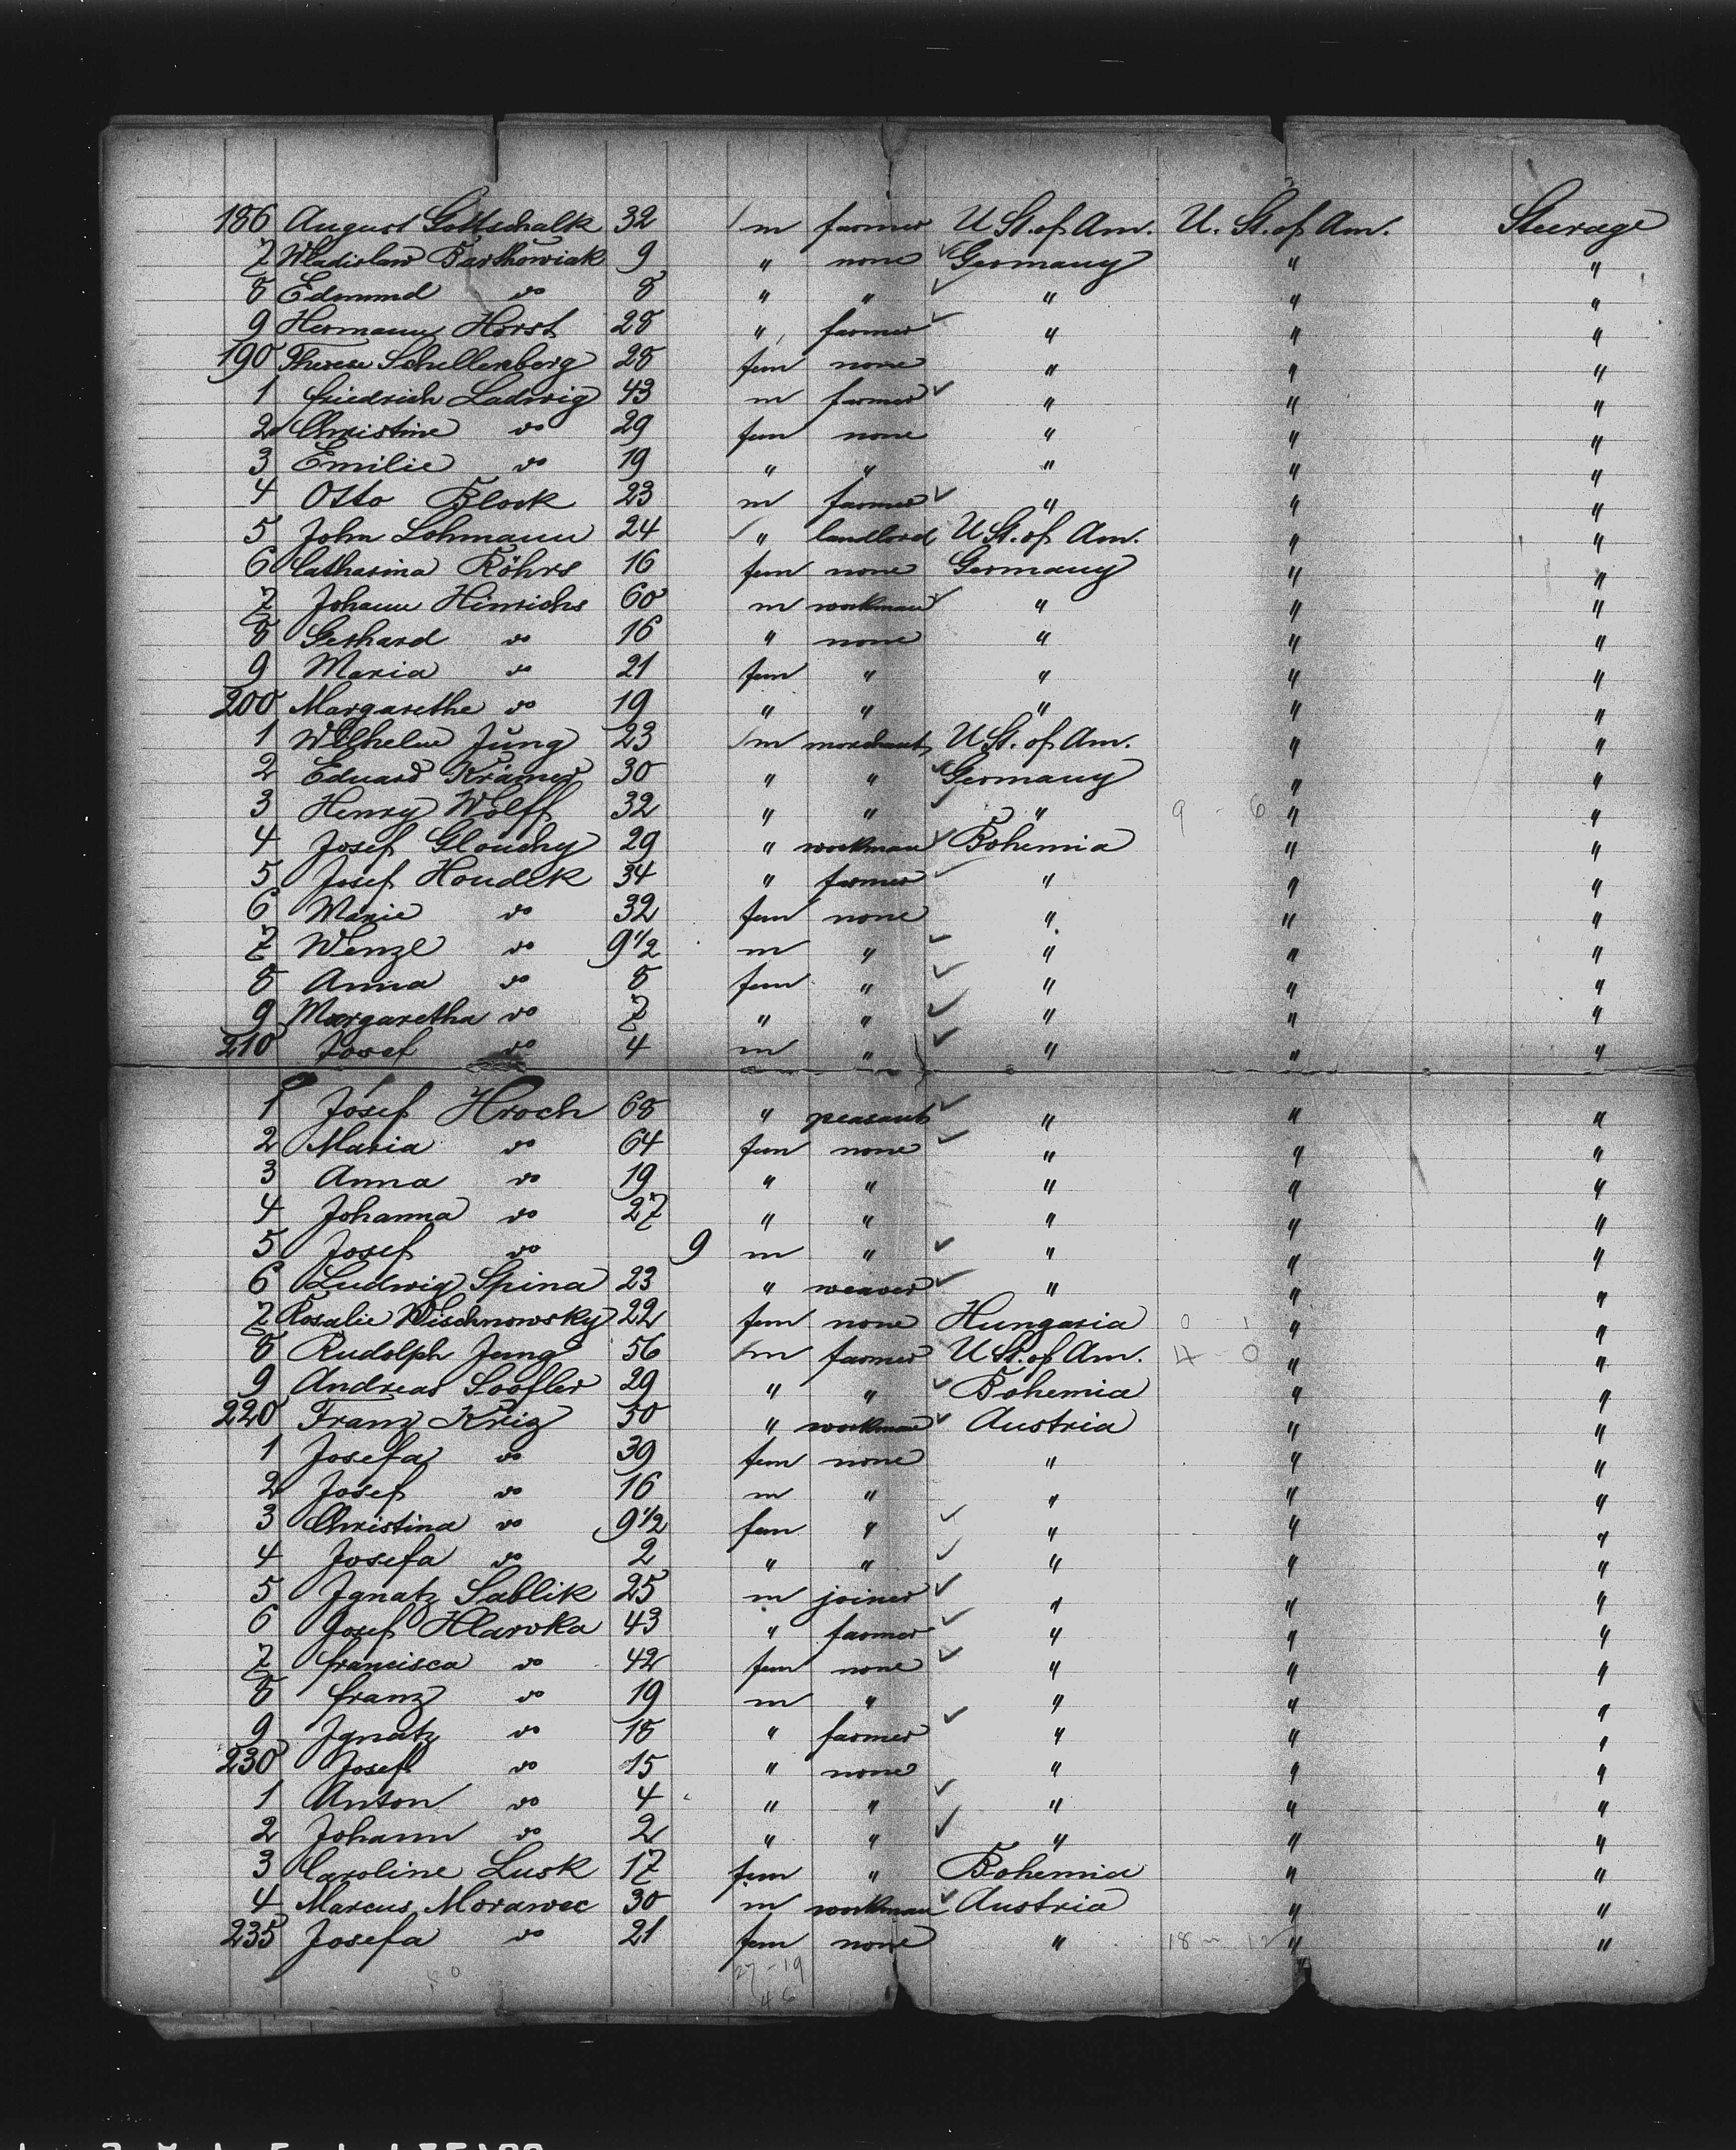 186 August Gottschalk 32 m farmer U St. of Am. U. St. of Am. Steerage
7 Wladislaw Barthowiak 9 " none Germany " "
8 Edmund do 8 " " " " "
9 Hermann Horst 28 " farmer " " "
190 Therese Schellenberg 28 fem none " " "
1 Friedrich Ladwig 43 m farmer " " "
2 Christine do 29 fem none " " "
3 Emilie do 19 " " " " "
4 Otto Block 23 m farmer " " "
5 John Lohmann 24 " landlord U St. of Am. " "
6 Catharina Röhrs 16 fem none Germany " "
7 Johann Hinrichs 60 m workman " " "
8 Gerhard do 16 " none " " "
9 Maria do 21 fem " " " "
200 Margarethe do 19 " " " " "
1 Wilhelm Jung 23 m merchant U St. of Am. " "
2 Eduard Krämer 30 " " Germany " "
3 Henry Wolff 32 " " " 9 - 6 " "
4 Josef Gloudny 29 " workman Bohemia " "
5 Josef Houdek 34 " farmer " " "
6 Marie do 32 fem none " " "
7 Wenzl do 9 1/2 m " " " "
8 Anna do 8 fem " " " "
9 Margaretha do 7 " " " " "
210 Josef do 4 m " " " "
1 Josef Hroch 68 " peasant " " "
2 Maria do 64 fem none " " "
3 Anna do 19 " " " " "
4 Johanna do 27 " " " " "
5 Josef do 9 m " " " "
6 Ludwig Spina 23 " weaver " " "
7 Rosalie Wischnowsky 22 fem none Hungaria 0 1 " "
8 Rudolph Jung 56 m farmer U St. of Am. 4 - 0 " "
9 Andreas Soofler 29 " " Bohemia " "
220 Franz Krig 50 " workman Austria " "
1 Josefa do 39 fem none " " "
2 Josef do 16 m " " " "
3 Christina do 9 1/2 fem " " " "
4 Josefa do 2 " " " " "
5 Ignatz Sablik 25 m joiner " " "
6 Josef Hlavka 43 " farmer " " "
7 Francisca do 42 fem none " " "
8 Franz do 19 m " " " "
9 Ignatz do 18 " farmer " " "
230 Josef do 15 " none " " "
1 Anton do 4 " " " " "
2 Johann do 2 " " " " "
3 Caroline Lusk 17 fem " Bohemia " "
4 Marcus Morawec 30 m workman Austria " "
235 Josefa do 21 fem none " 18 - 12 " "
27 - 19
46